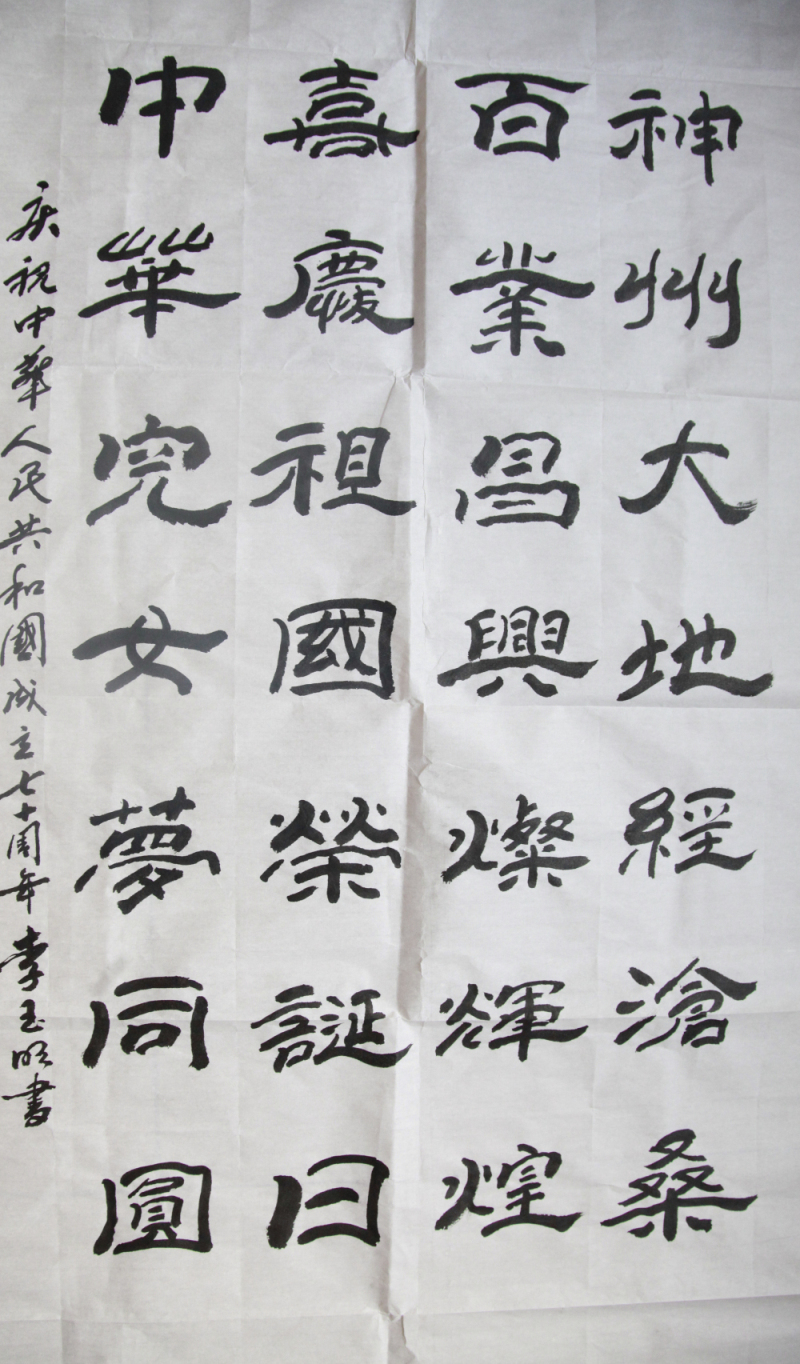 神州大地經滄桑
百業昌興燦輝煌
喜慶祖國榮誕日
中華兒女夢同圓
庆祝中华人民共和國成立七十周年 李玉明書